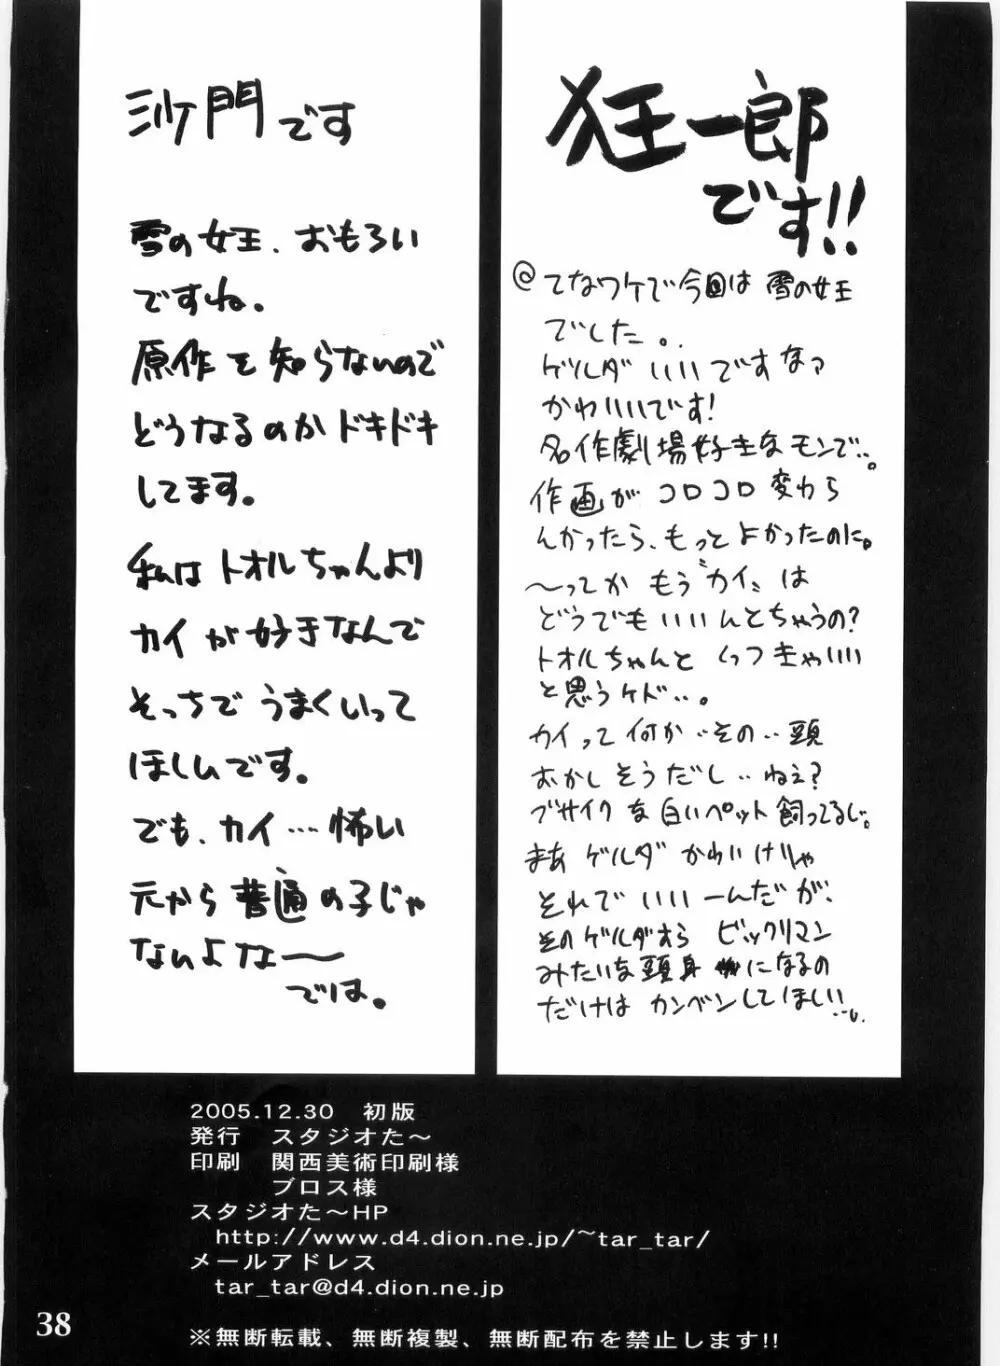 狂一郎
です!!
@てなワケで今回は 雪の女王
でした。
ゲルダ いいですなァ
かわいいです!
名作劇場好きなモンで…。
作画が コロコロ 変わら
んかったら、もっと よかったのに。
〜ってか もう〝カイ〟は
どうでもいいんとちゃうの?
トオルちゃんと くっつきゃいい
と思うケド…。
カイって 何か‥その‥頭
おかしそうだし‥ねぇ?
ブサイクな白いペット飼ってるし。
まあ ゲルダ かわいけりゃ
それで いいーんだが、
そのゲルダすら ビックリマン
みたいな頭身 になるの
だけは カンベンしてほしい…。
沙門です
雪の女王、おもろい
ですね。
原作を知らないので
どうなるのかドキドキ
してます。
私はトオルちゃんより
カイが好きなんで
そっちでうまくいって
ほしいです。
でも、カイ…怖い
元から普通の子じゃ
ないよなー〜
では。
2005.12.30 初版
発行 スタジオた〜
印刷 関西美術印刷様
ブロス様
スタジオた〜HP
http://www.d4.dion.ne.jp/~tar_tar/
メールアドレス
tar_tar@d4.dion.ne.jp
38
※無断転載、無断複製、無断配布を禁止します!!